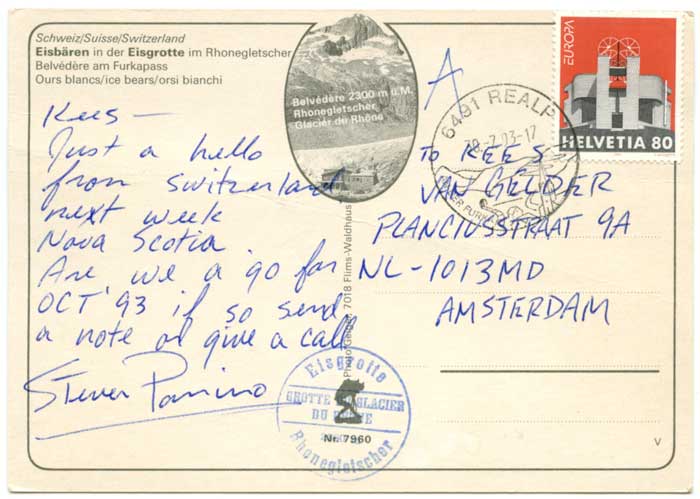 Schweiz/Suisse/Switzerland
Eisbären in der Eisgrotte im Rhonegletscher
Belvédère am Furkapass
Ours blancs/ice bears/orsi bianchi
Belvédère 2300 m ü.M.
Rhonegletscher
Glacier du Rhône
EUROPA
HELVETIA 80
6491 REALP
-7.93-17
A
Kees —
Just a hello
from Switzerland
next week
Nova Scotia.
Are we a go for
OCT '93 if so send
a note or give a call
Steven
To KEES
VAN GELDER
PLANCIUSSTRAAT 9A
NL-1013MD
AMSTERDAM
7018 Flims-Waldhaus
Eisgrotte
GROTTE GLACIER
DU
Rhonegletscher
Nr. 7960
V